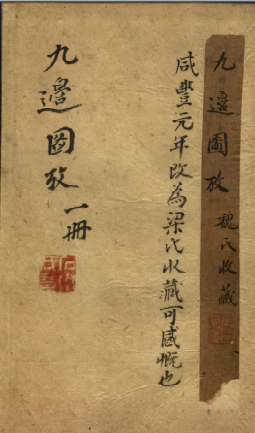 九邉圖攷
魏氏收藏
咸豐元年改為梁氏收藏可感慨也
九邉圖攷一冊